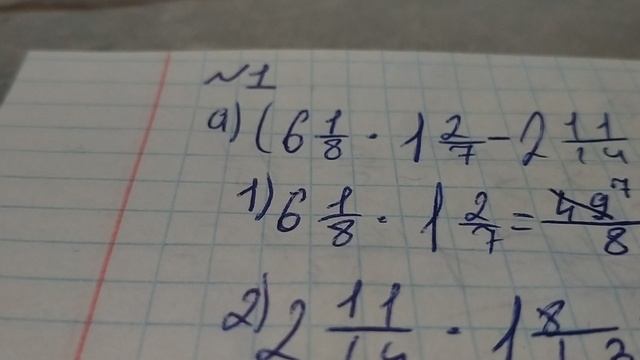 №1
а) (6 1/8 · 1 2/7 - 2 11/14
1) 6 1/8 · 1 2/7 = 49 7/8
2) 2 11/14 · 1 8/